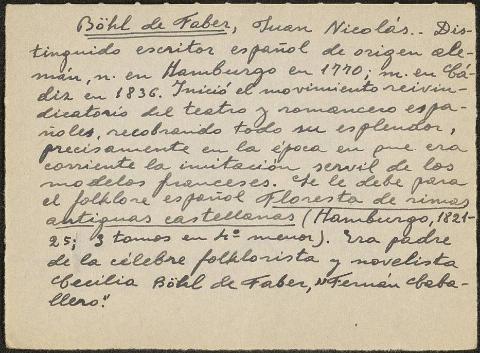 Böhl de Faber, Juan Nicolás.- Dis-
tinguido escritor español de origen ale-
mán, n. en Hamburgo en 1770; m. en Cá-
diz en 1836. Inició el movimiento reivin-
dicatorio del teatro y romancero espa-
ñoles, recobrando todo su esplendor,
precisamente en la época en que era
corriente la imitación servil de los
modelos franceses. Se le debe para
el folklore español Floresta de rimas
antiguas castellanas (Hamburgo, 1821-
25; 3 tomos en 4º menor). Era padre
de la célebre folklorista y novelista
Cecilia Böhl de Faber, "Fernán Caba-
llero".